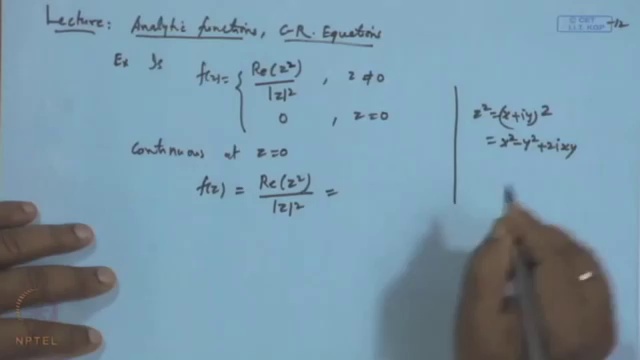 Lecture: Analytic functions, C-R. Equations
© CET
I.I.T. KGP
-12
Ex Is f(z) = { Re(z²) / |z|² , z ≠ 0
0 , z = 0
Continuous at z = 0
f(z) = Re(z²) / |z|² =
z² = (x+iy)²
= x² - y² + 2ixy
NPTEL